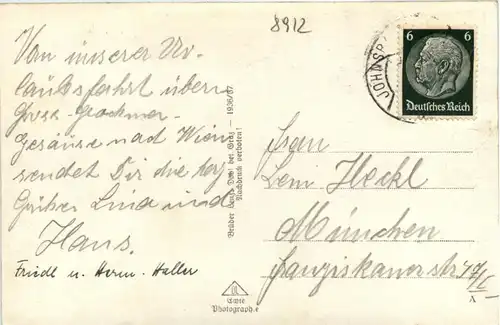 8912
Von unserer Ur-
laubsfahrt über
Gross-Glockner-
Gesäuse nach Wien
sendet Dir die herz
Grüße Lina und
Hans.
Friedl u. Herm. Haller
Brüder bei Graz — 1936/37
Nachdruck verboten!
Echte
Photographie
JOHNSB
6 6
Deutsches Reich
Frau
Heckl
München
Franziskanerstr